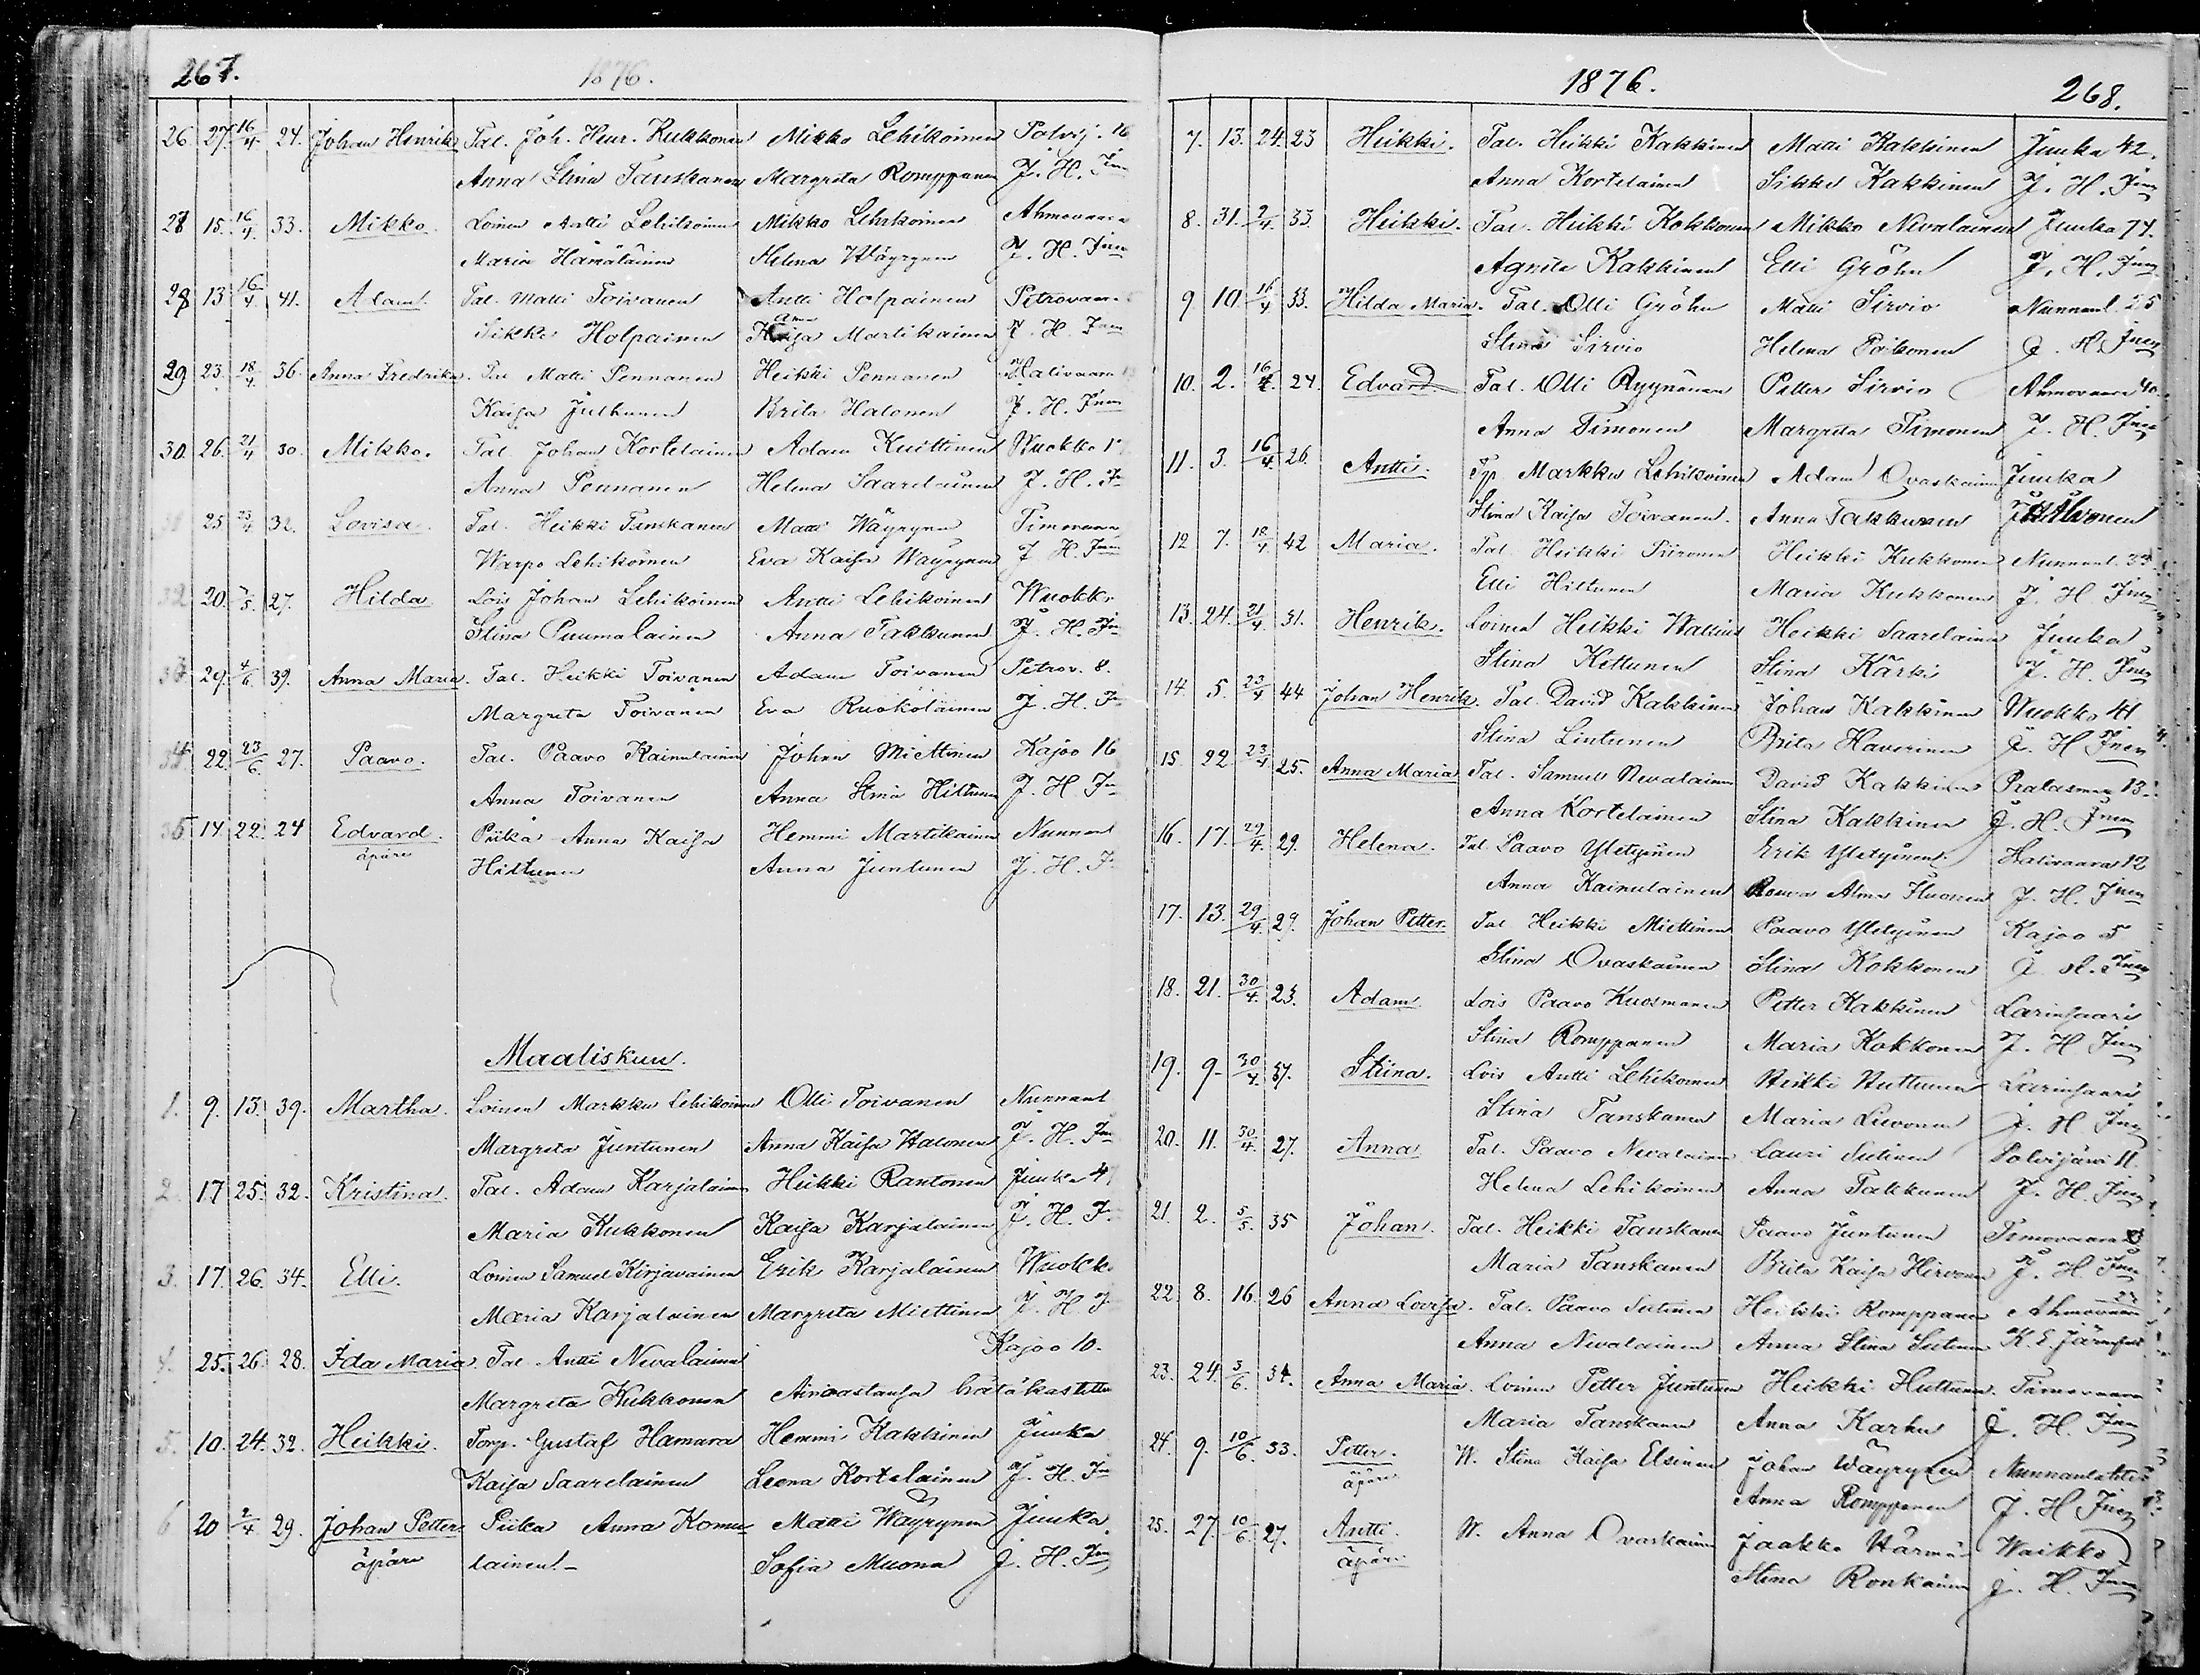 267.
1876.
26. 27. 16/4. 24. Johan Henrik Tal. Joh. Henr. Kukkonen Mikko Lehikoinen Polvij. 16
Anna Stina Tanskanen Margreta Romppanen J. H.
27 15. 16/4. 33. Mikko. Loinen Antti Lehikoinen Mikko Lehikoinen Ahmovaara
Maria Hämäläinen Helena Wäyrynen J. H.
28 13 16/4. 41. Adam. Tal. Matti Toivanen Antti Holpainen Petrovaara
Sikke Holpainen Kaisa Martikainen J. H.
29 23. 18/4. 36. Anna Fredrika. Tal Matti Pennanen Heikki Pennanen Halivaara
Kaisa Julkunen Brita Halonen J. H.
30. 26. 21/4 30. Mikko. Tal. Johan Kortelainen Adam Kuittinen Wuokko
Anna Pennanen Helena Saarelainen J. H.
25 23/4 32. Lovisa. Tal. Heikki Tanskanen Matti Wäyrynen Timovaara
Warpo Lehikoinen Eva Kaisa Wäyrynen J. H.
32 20. 7/5. 27. Hilda Lois Johan Lehikoinen Antti Lehikoinen Wuokko
Stina Puumalainen Anna Takkunen J. H.
33 29. 4/6. 39. Anna Maria. Tal. Heikki Toivanen Adam Toivanen Petrov. 8.
Margreta Toivanen Eva Ruokolainen J. H.
34 22. 23/6. 27. Paavo. Tal. Paavo Kainulainen Johan Miettinen Kajoo 16
Anna Toivanen Anna Stina Hiltunen J. H.
35 14. 22. 24 Edvard. Piika Anna Kaisa Hemmi Martikainen Nunnanl
äpäre Hiltunen Anna Juntunen J. H.
Maaliskuu.
1. 9. 13. 39. Martha. Loinen Markku Lehikoinen Olli Toivanen Nunnanl
Margreta Juntunen Anna Kaisa Halonen J. H.
2. 17 25. 32. Kristina. Tal. Adam Karjalainen Heikki Rantonen Juuka
Maria Kukkonen Kaisa Karjalainen J. H.
3. 17. 26. 34. Elli. Loinen Samuel Kirjavainen Erik Karjalainen Wuokko
Maria Karjalainen Margreta Miettinen J. H.
4. 25. 26. 28. Ida Maria Tal. Antti Nevalainen Kajoo 10.
Margreta Kukkonen Ainoastansa hätäkastettu
5. 10. 24. 32. Heikki. Torp. Gustaf Hamara Hemmi Kakkinen Juuka
Kaisa Saarelainen Leena Kortelainen J. H.
6 20 2/4 29. Johan Petter Piika Anna Komu- Matti Wäyrynen Juuka
äpäre lainen.- Sofia Muona J. H.
1876.
268.
7. 13. 24. 23 Heikki. Tal. Heikki Kakkinen Matti Kakkinen Juuka 42.
Anna Kortelainen Sikke Kakkinen J. H.
8. 31. 2/4. 33. Heikki. Tal. Heikki Kokkonen Mikko Nevalainen Juuka 74.
Agneta Kakkinen Elli Gröhn J. H.
9. 10. 16/4 33. Hilda Maria. Tal. Olli Gröhn Matti Sirvio Nunnanl. 25
Stina Sirvio Helena Pakonen J. H.
10. 2. 16/4. 24. Edvard Tal. Olli Ryynänen Petter Sirvio Ahmovaara 40.
Anna Timonen Margreta Timonen J. H.
11. 3. 16/4. 26. Antti. Markku Lehikoinen Adam Ovaskainen Juuka
Stina Kaisa Toivanen. Anna Takkunen
12 7. 18/4 42 Maria. Tal Heikki Piironen Heikki Kukkonen Nunnanl. 33
Elli Hiltunen Maria Kukkonen J. H.
13. 24. 21/4. 31. Henrik. Loinen Heikki Heikki Saarelainen Juuka
Stina Kettunen Stina Kärki J. H.
14. 5. 23/4 44 Johan Henrik. Tal. David Kakkinen Johan Kakkinen Wuokko 41
Stina Lintunen Brita Haverinen J. H.
15. 22 23/4 25. Anna Maria Tal. Samuel Nevalainen David Kakkinen 13.
Anna Kortelainen Stina Kakkinen J. H.
16. 17. 29/4. 29. Helena. Tal Paavo Yletyinen Erik Yletyinen Halivaara 12
Anna Kainulainen Rouva Alma J. H.
17. 13. 29/4. 29. Johan Petter. Tal Heikki Miettinen Paavo Yletyinen Kajoo 5
Stina Ovaskainen Stina Kokkonen J. H.
18. 21. 30/4. 23. Adam. Lois Paavo Kuosmanen Petter Kakkinen Larinsaari
Stina Romppanen Maria Kokkonen J. H.
19. 9. 30/4. 37. Stiina. Lois Antti Lehikoinen Heikki Huttunen Larinsaari
Stina Tanskanen Maria Livonen J. H.
20. 11. 30/4. 27. Anna Tal. Paavo Nevalainen Lauri Sutinen Polvijärvi 11.
Helena Lehikoinen Anna Takkunen J. H.
21. 2. 5/5. 35 Johan. Tal. Heikki Tanskanen Paavo Juntunen Timovaara
Maria Tanskanen Brita Kaisa Hirvonen J. H.
22. 8. 16. 26 Anna Lovisa. Tal. Paavo Sutinen Heikki Romppanen Ahmovaara
Anna Nevalainen Anna Stina Sutinen K. E.
23. 24. 5/6. 34. Anna Maria. Loinen Petter Juntunen Heikki Huttunen. Timovaara
Maria Tanskanen Anna Karhu J. H.
24. 9. 10/6. 33. Petter. W. Stina Kaisa Elsinen Johan Wäyrynen Nunnanlahti
äpäre Anna Romppanen J. H.
25. 27. 10/6. 27. Antti. W. Anna Ovaskainen Jaakko Härmä Waikko
äpäre Stina Ronkainen J. H.